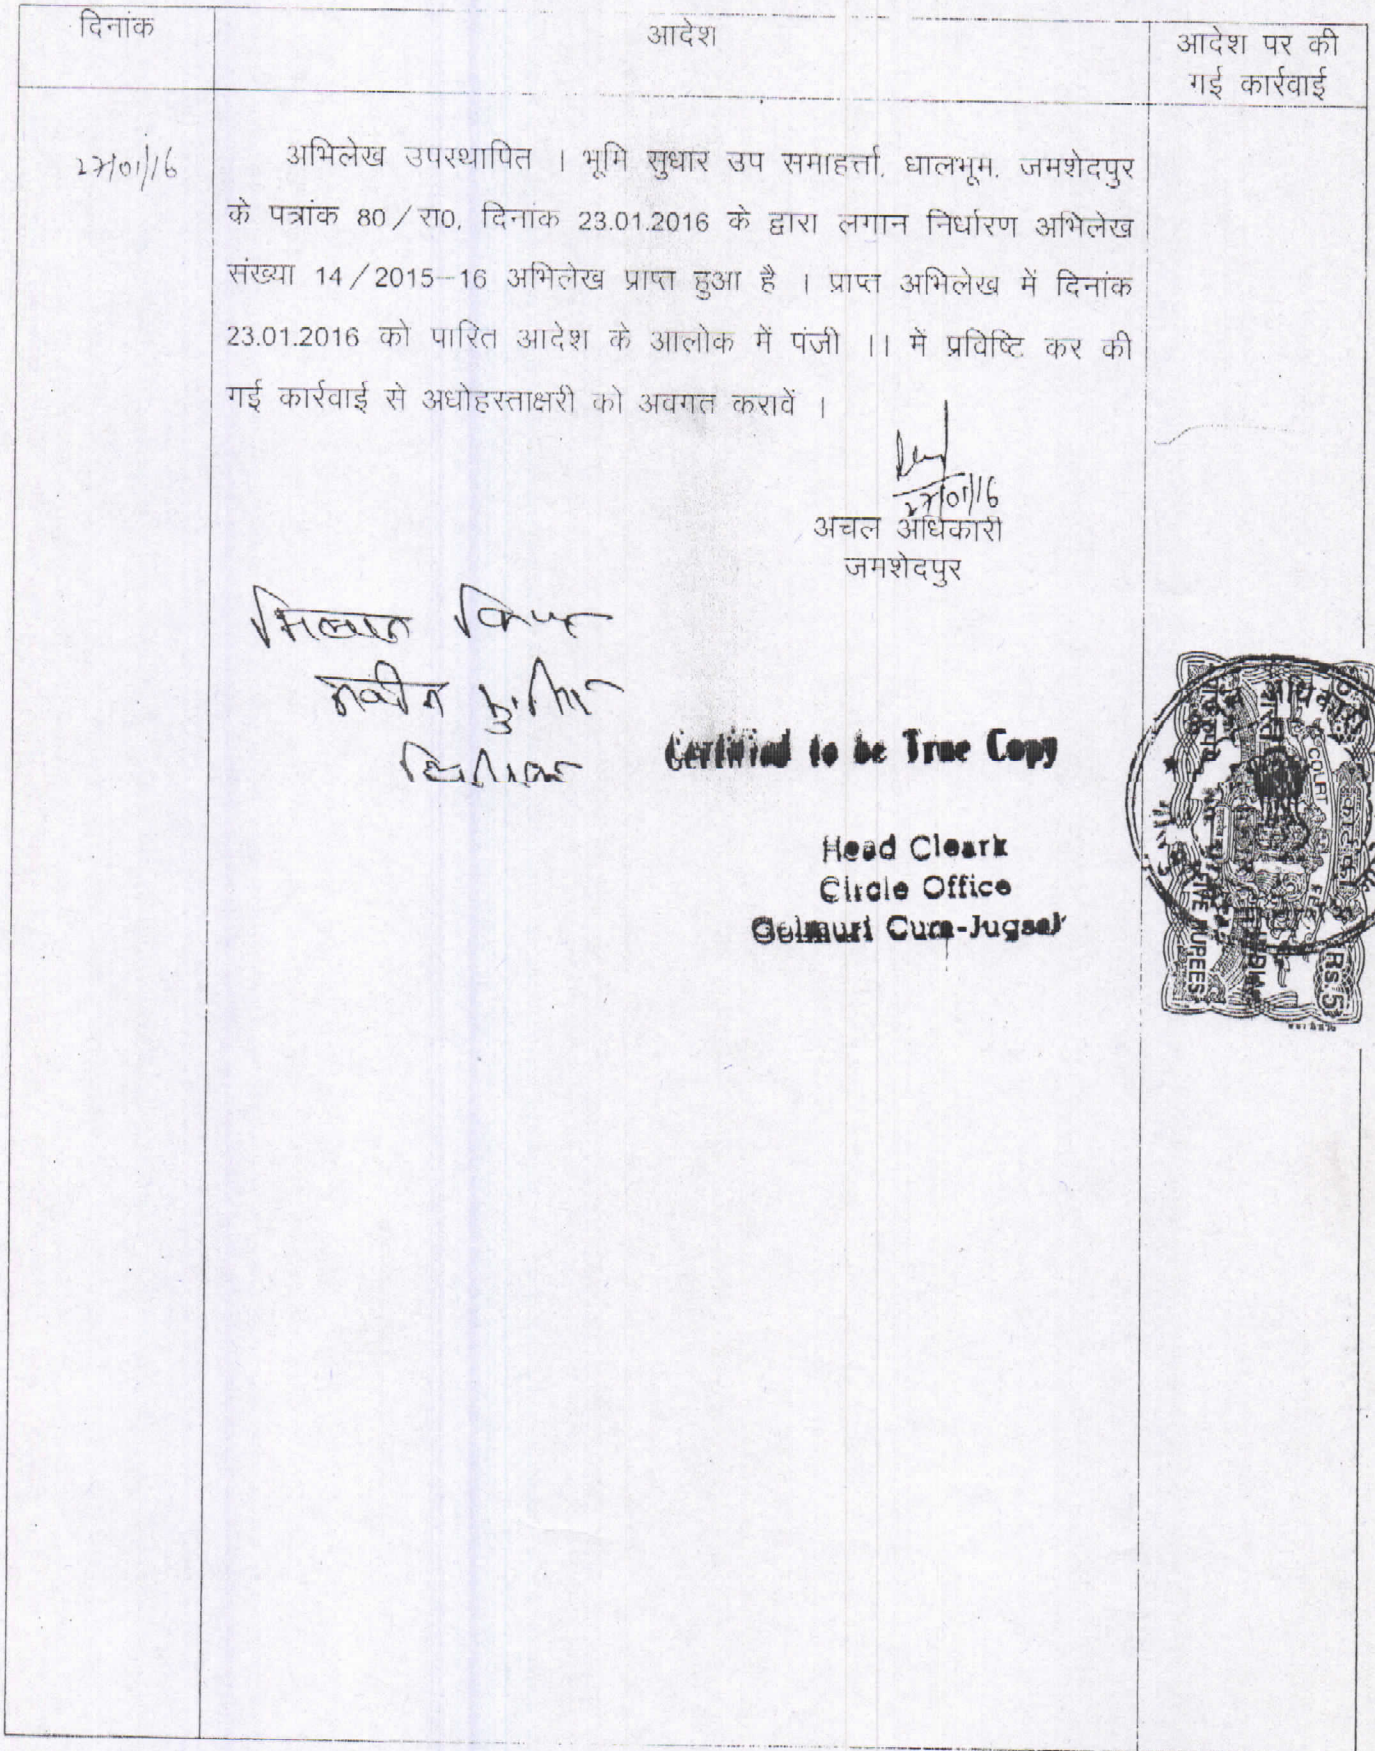 दिनांक
आदेश
आदेश पर की
गई कार्रवाई
27/01/16
अभिलेख उपस्थापित । भूमि सुधार उप समाहर्त्ता, धालभूम, जमशेदपुर
के पत्रांक 80/रा0, दिनांक 23.01.2016 के द्वारा लगान निर्धारण अभिलेख
संख्या 14/2015-16 अभिलेख प्राप्त हुआ है । प्राप्त अभिलेख में दिनांक
23.01.2016 को पारित आदेश के आलोक में पंजी ।। में प्रविष्टि कर की
गई कार्रवाई से अधोहस्ताक्षरी को अवगत करावें ।
27/01/16
अंचल अधिकारी
जमशेदपुर
मिलान किया
नवीन कुमार
Certified to be True Copy
Head Cleark
Circle Office
Golmuri Cum-Jugsal
COURT
FIVE RUPEES
INDIA
Rs.5